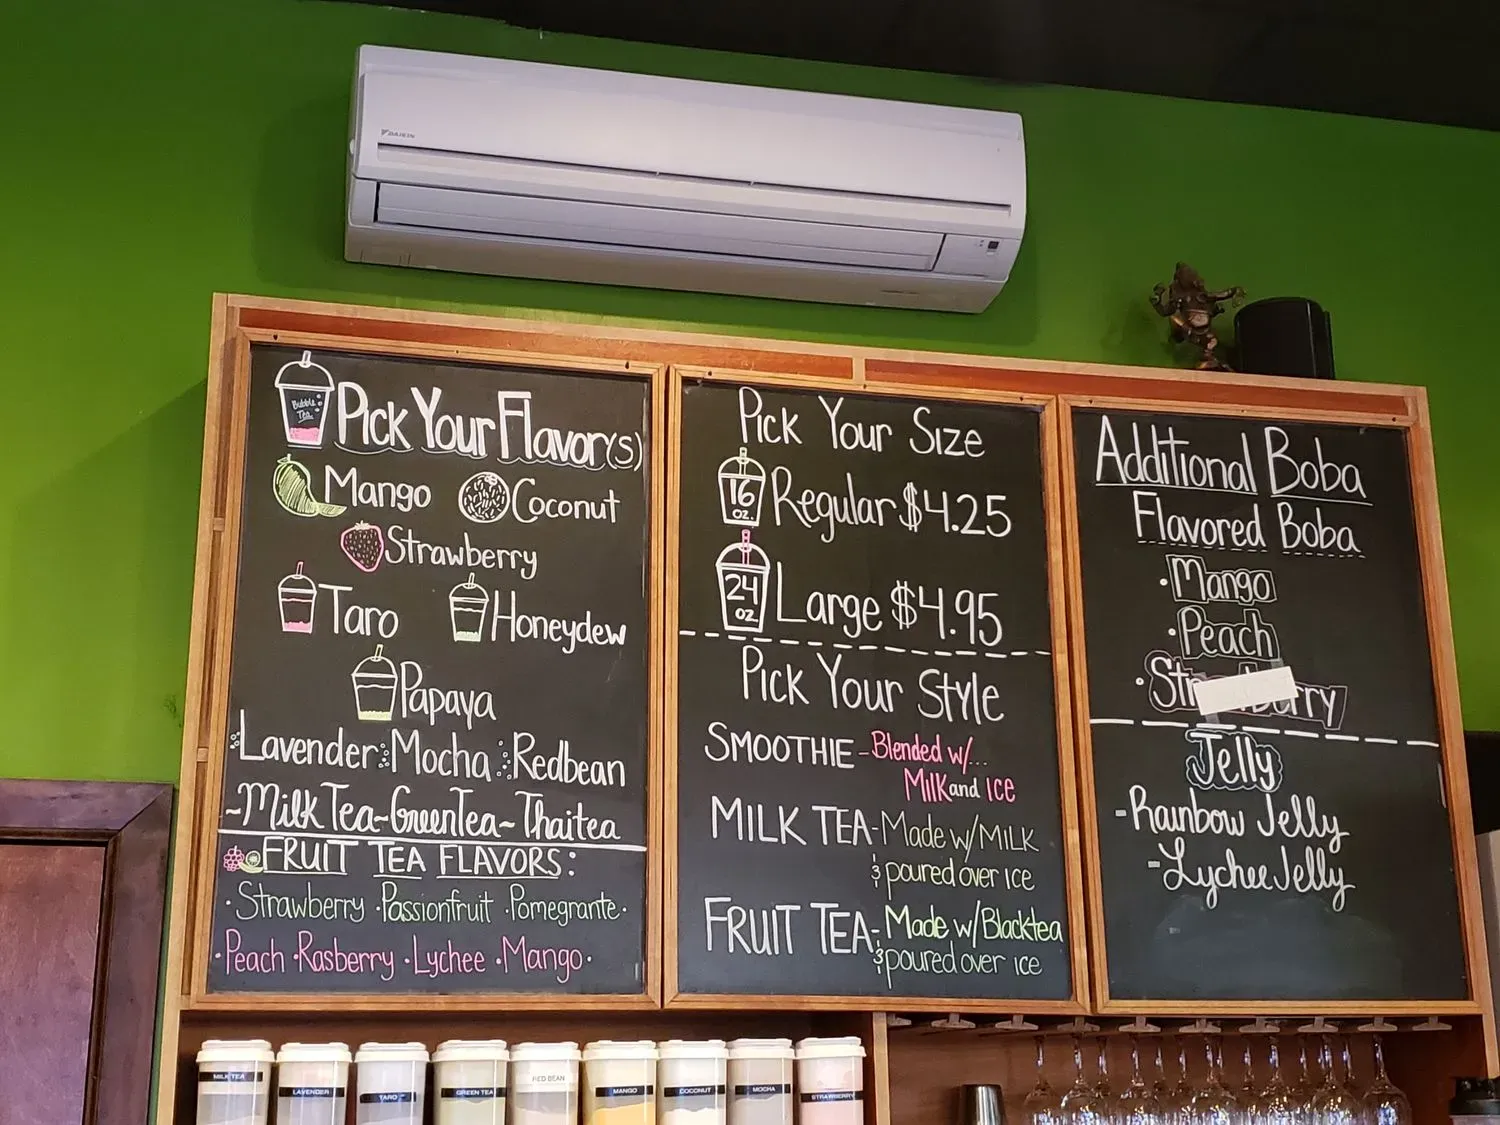 DAIKIN
Bubble
Tea
Pick Your Flavor(s)
Mango Coconut
Strawberry
Taro Honeydew
Papaya
Lavender Mocha Redbean
~Milk Tea~GreenTea~Thaitea
FRUIT TEA FLAVORS:
·Strawberry ·Passionfruit ·Pomegrante·
·Peach ·Rasberry ·Lychee ·Mango·
Pick Your Size
16 oz. Regular $4.25
24 oz Large $4.95
Pick Your Style
SMOOTHIE-Blended w/...
Milk and ICE
MILK TEA-Made w/MILK
& poured over ICE
FRUIT TEA-Made w/Blacktea
& poured over ice
Additional Boba
Flavored Boba
·Mango
·Peach
·Strawberry
Jelly
-Rainbow Jelly
-Lychee Jelly
MILK TEA
LAVENDER
TARO
GREEN TEA
RED BEAN
MANGO
COCONUT
MOCHA
STRAWBERRY